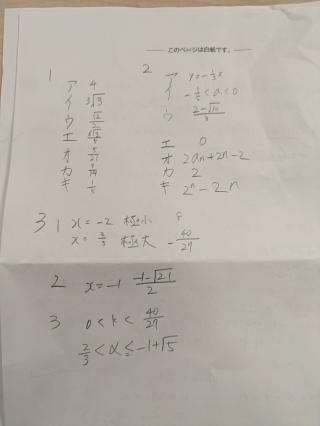 このページは白紙です。
1
ア 4
イ 3√3
ウ √2/2
エ
オ 5/21
カ
キ 1/5
2
ア y=-1/3x
イ -1/5<a<0
ウ
エ 0
オ 2an+2n-2
カ 2
キ 2ⁿ-2n
3 1 x=-2 極小 8
x=2/3 極大 -40/27
2 x=-1 (-1-√21)/2
3 0<k<40/27
2/3<α≦-1+√5